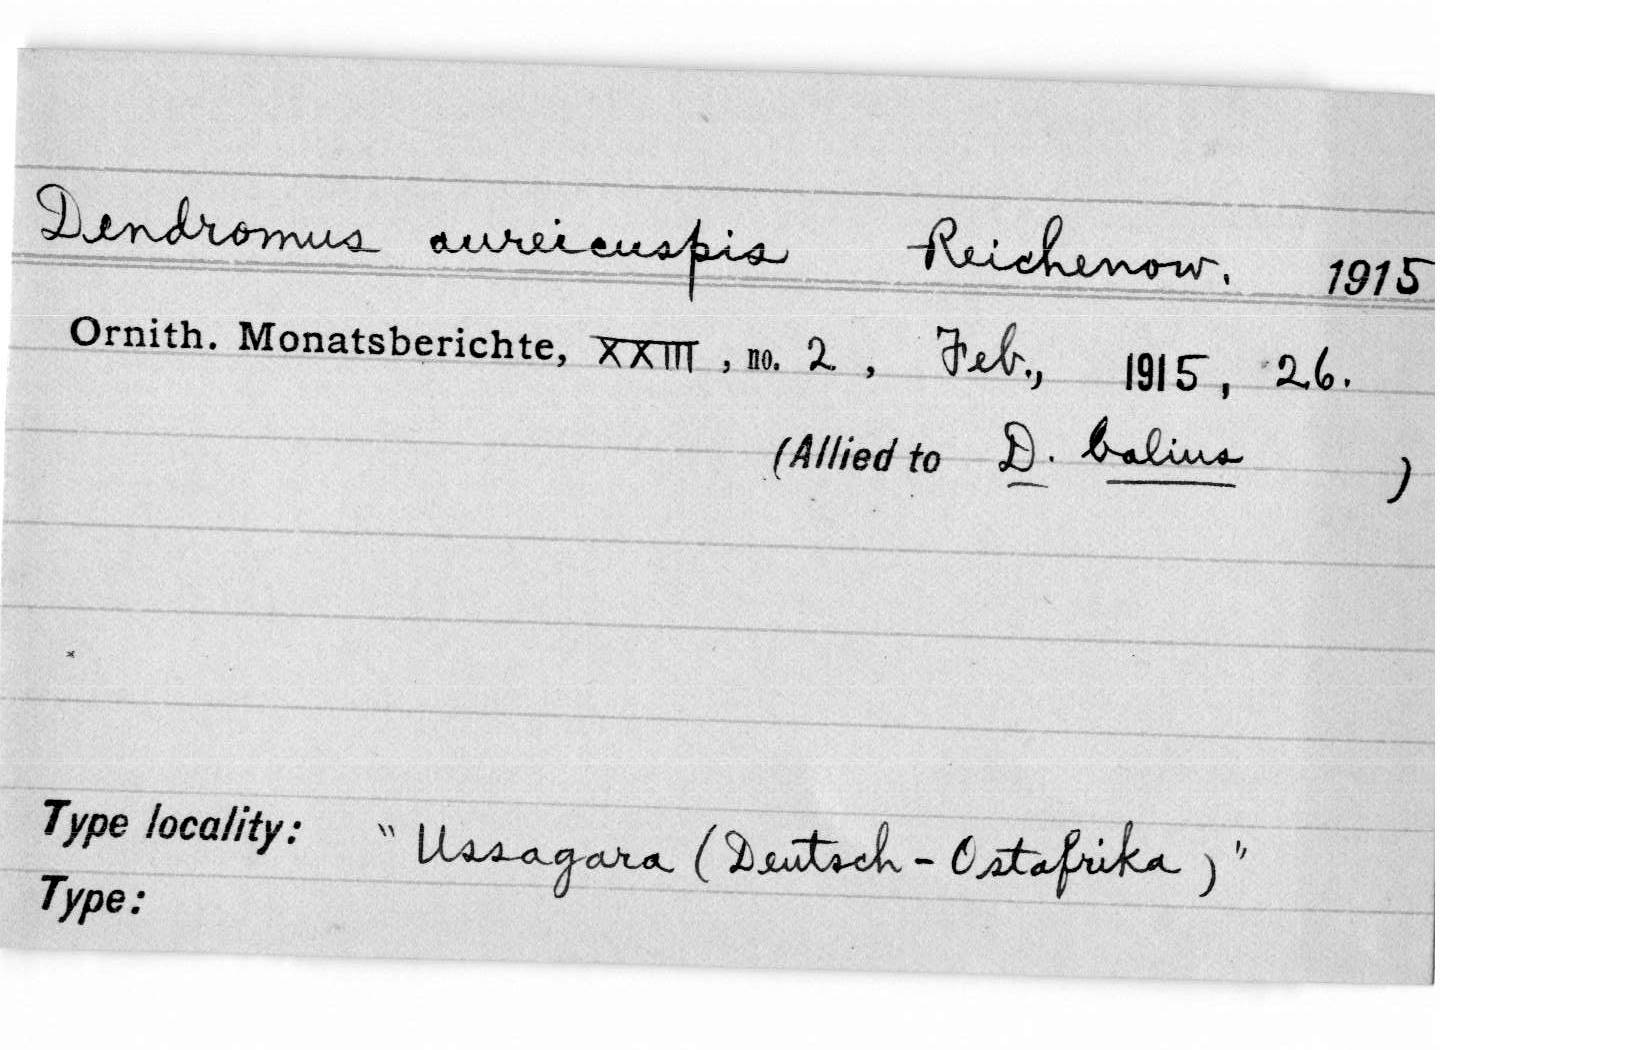 Dendromus aureicuspis Reichenow. 1915
Ornith. Monatsberichte, XXIII, no. 2, Feb., 1915, 26.
(Allied to D. balius )
Type locality: "Ussagara (Deutsch-Ostafrika)"
Type: